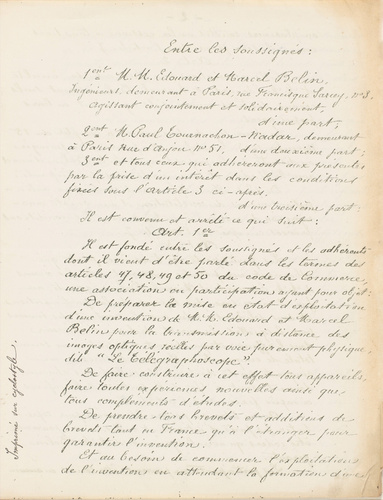 Entre les soussignés:
1ent M.M. Edouard et Marcel Belin
Ingénieurs, demeurant à Paris, rue Francisque Sarcey, n° 8,
agissant conjointement et solidairement,
d'une part,
2ent M. Paul Tournachon-Nadar, demeurant
à Paris rue d'Anjou n° 51, d'un deuxième part;
3ent et tous ceux qui adhèreront aux présentes
par la prise d'un intérêt dans les conditions
fixées sous l'article 3 ci-après,
d'une troisième part:
Il est convenu et arrêté ce qui suit:
Art. 1er
Il est fondé entre les soussignés et les adhérents
dont il vient d'être parlé dans les termes des
articles 47, 48, 49 et 50 du code de Commerce,
une association en participation ayant pour objet:
De préparer la mise en état d'exploitation
d'une invention de M.M. Edouard et Marcel
Belin pour la transmission à distance des
images optiques réelles par voie purement physique,
dite "Le Télégraphoscope".
De faire construire à cet effet tous appareils,
faire toutes expériences nouvelles ainsi que
tous compléments d'études.
De prendre tous brevets et additions de
brevets tant en France qu'à l'étranger pour
garantir l'invention.
Et au besoin de commencer l'exploitation
de l'invention en attendant la formation d'une
Imprimé sur cyclostyle.